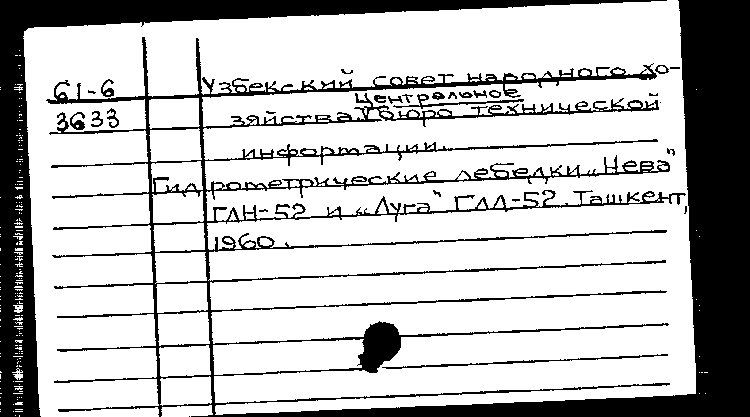 61-6 Узбекский совет народного хо-
Центральное
3633 зяйства. V Бюро технической
информации.
Гидрометрические лебедки „Нева"
ГЛН-52 и „Луга" ГЛЛ-52. Ташкент,
1960.